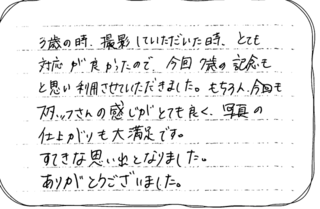 3歳の時、撮影していただいた時、とても
対応が良かったので、今回7歳の記念も
と思い利用させていただきました。もちろん、今回も
スタッフさんの感じがとても良く、写真の
仕上がりも大満足です。
すてきな思い出となりました。
ありがとうございました。